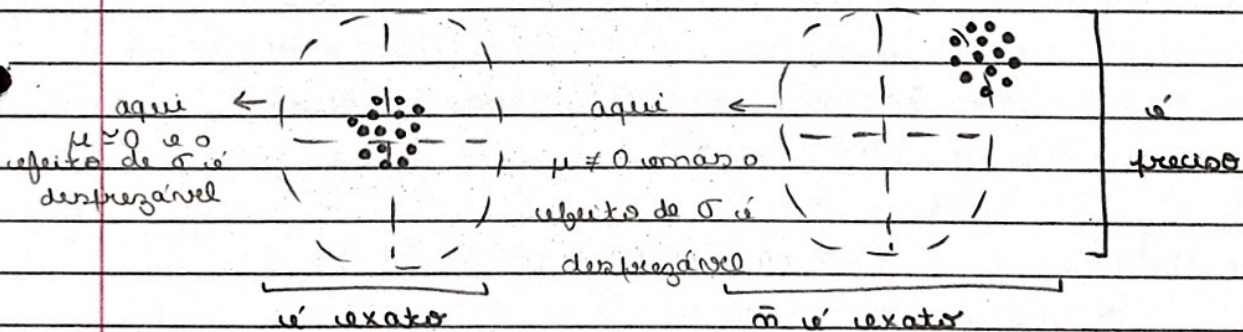 aqui
μ ≈ 0 e o
efeito de σ é
desprezável
aqui
μ ≠ 0 mas o
efeito de σ é
desprezável
é
preciso
é exato
ñ é exato